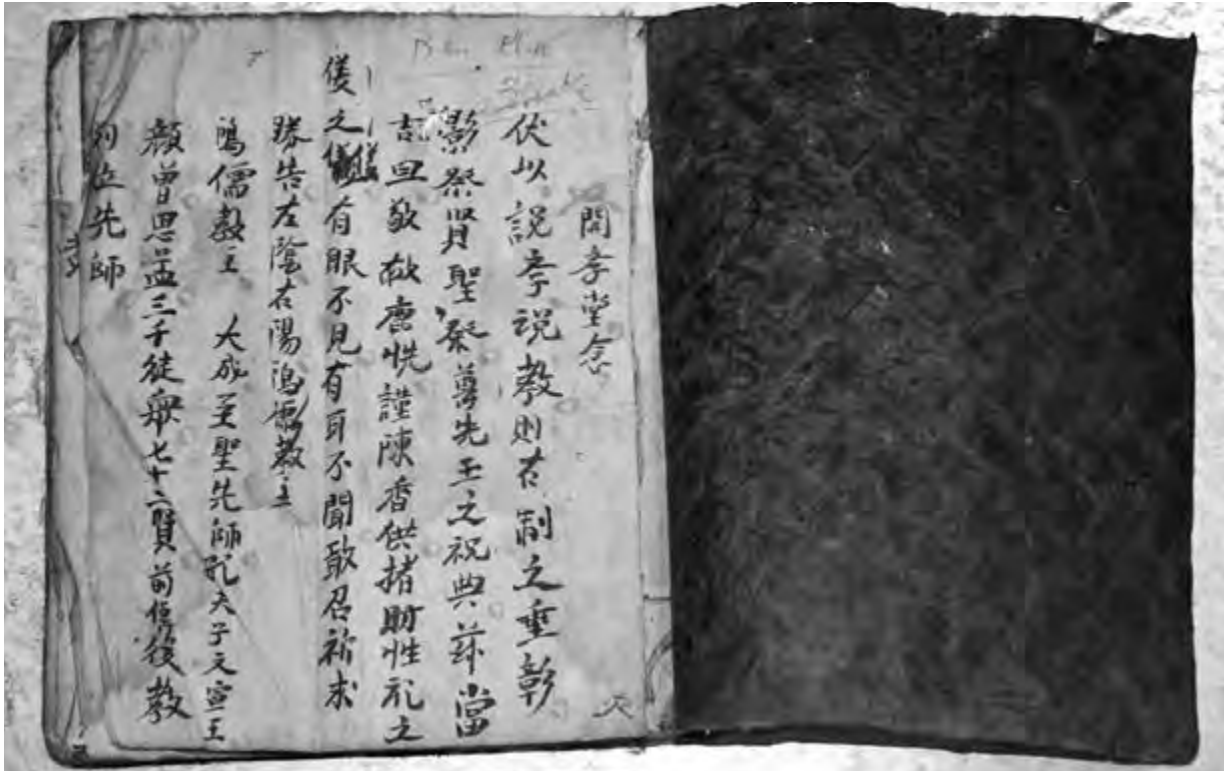 開孝堂念
伏以說孝說教則古制之重彰
影祭賢聖祭尊先王之祝典茲當
吉旦敬敢虔悦謹陳香供楮財性礼之
儀之有眼不見有耳不聞敢召祈求
勝告左陰右陽鴻儒教主
鴻儒教主 大成至聖先師孔夫子文宣王
顏曾思孟三千徒衆七十二賢前傳後教
列位先師
孝